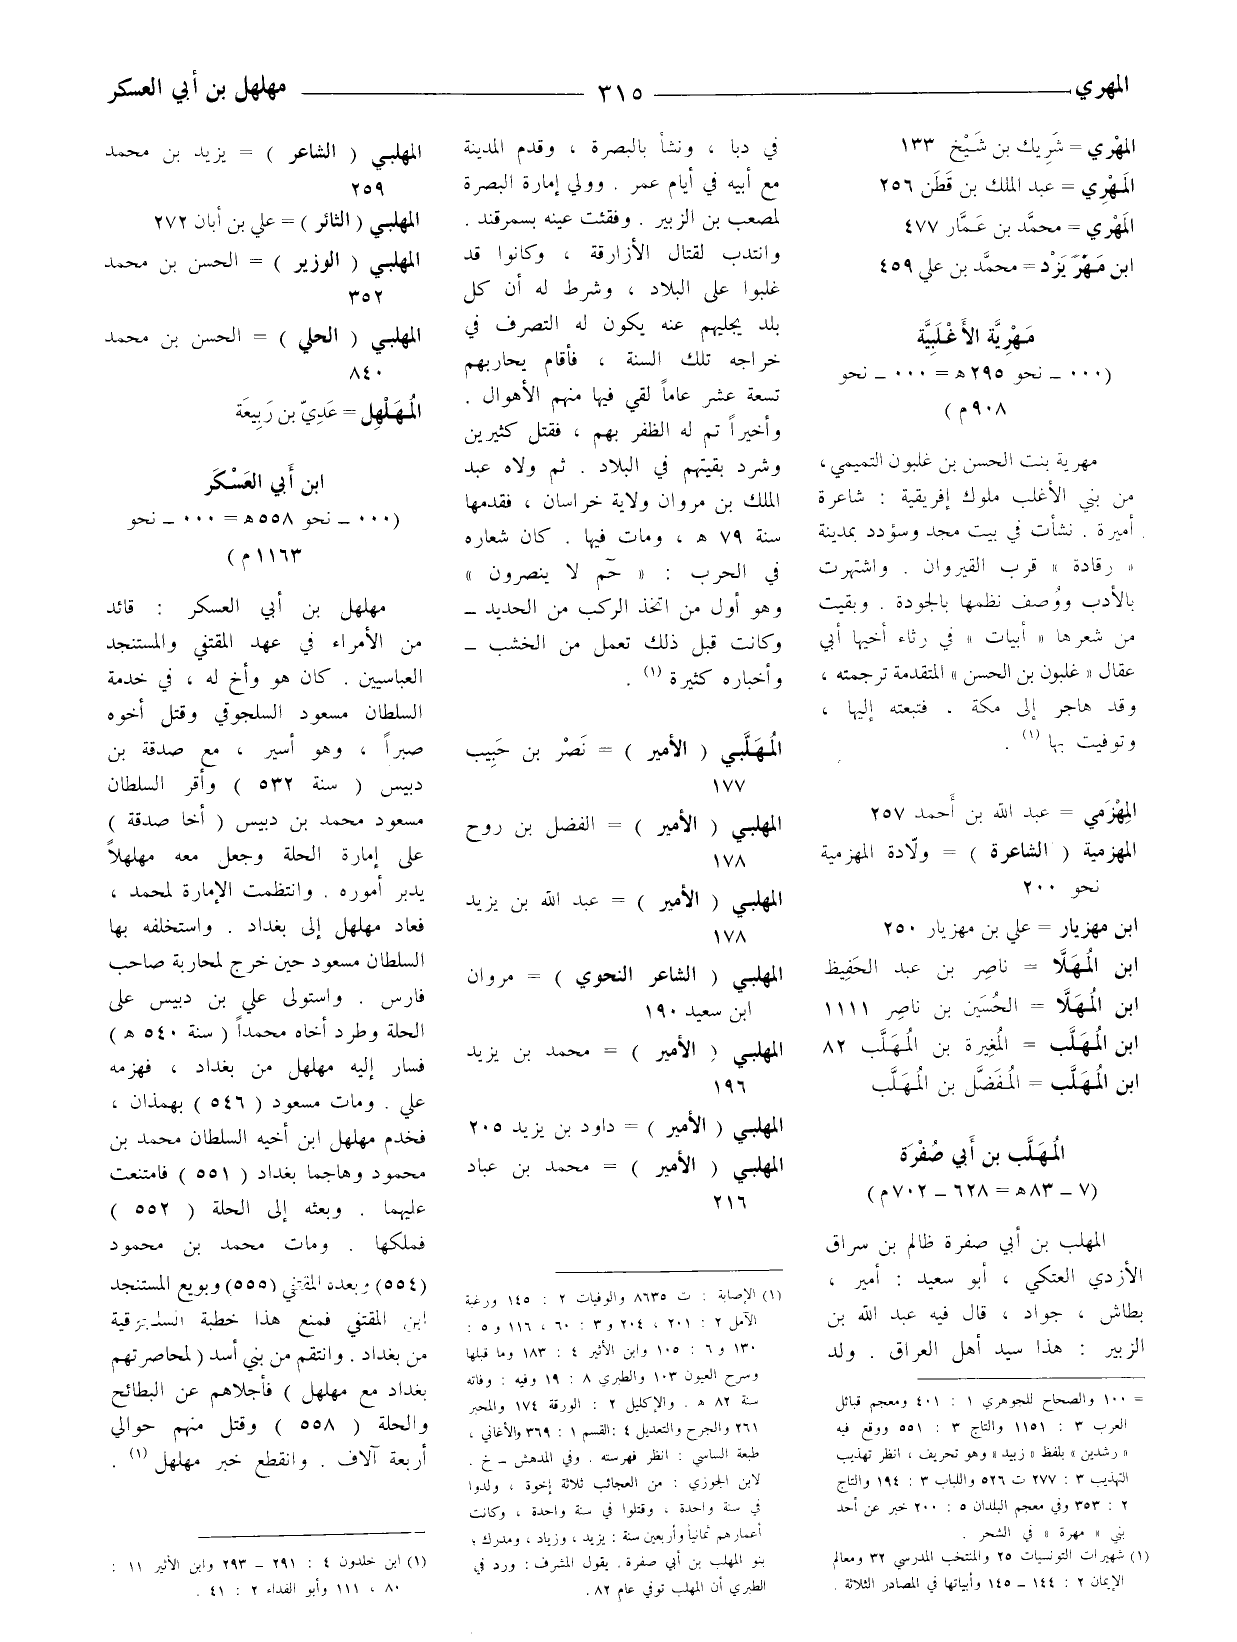 المهري ٣١٥ مهلهل بن أبي العسكر
المَهْري = شَرِيك بن شَيْخ ١٣٣
المَهْرِي = عبد الملك بن قَطَن ٢٥٦
المَهْري = محمَّد بن عَمَّار ٤٧٧
ابن مَهْرَ يَزْد = محمَّد بن علي ٤٥٩
مَهْرِيَّة الأَغْلَبِيَّة
(٠٠٠ ـ نحو ٢٩٥ هـ = ٠٠٠ ـ نحو
٩٠٨ م)
مهرية بنت الحسن بن غلبون التميمي ،
من بني الأغلب ملوك إفريقية : شاعرة
أميرة . نشأت في بيت مجد وسؤدد بمدينة
« رقادة » قرب القيروان . واشتهرت
بالأدب ووُصف نظمها بالجودة . وبقيت
من شعرها « أبيات » في رثاء أخيها أبي
عقال « غلبون بن الحسن » المتقدمة ترجمته ،
وقد هاجر إلى مكة . فتبعته إليها ،
وتوفيت بها (١) .
المِهْزَمي = عبد الله بن أَحمد ٢٥٧
المهزمية ( الشاعرة ) = ولّادة المهزمية
نحو ٢٠٠
ابن مهزيار = علي بن مهزيار ٢٥٠
ابن المُهَلَّا = ناصِر بن عبد الحَفِيظ
ابن المُهَلَّا = الحُسَين بن ناصِر ١١١١
ابن المُهَلَّب = المُغِيرة بن المُهَلَّب ٨٢
ابن المُهَلَّب = المُفَضَّل بن المُهَلَّب
المُهَلَّب بن أَبي صُفْرَة
(٧ ـ ٨٣ هـ = ٦٢٨ ـ ٧٠٢ م)
المهلب بن أبي صفرة ظالم بن سراق
الأزدي العتكي ، أبو سعيد : أمير ،
بطاش ، جواد ، قال فيه عبد الله بن
الزبير : هذا سيد أهل العراق . ولد
= ١٠٠ والصحاح للجوهري ١ : ٤٠١ ومعجم قبائل
العرب ٣ : ١١٥١ والتاج ٣ : ٥٥١ ووقع فيه
« رشدين » بلفظ « زبيد » وهو تحريف ، انظر تهذيب
التهذيب ٣ : ٢٧٧ ت ٥٢٦ واللباب ٣ : ١٩٤ والتاج
٢ : ٣٥٣ وفي معجم البلدان ٥ : ٢٠٠ خبر عن أحد
بني « مهرة » في الشحر .
(١) شهيرات التونسيات ٢٥ والمنتخب المدرسي ٣٢ ومعالم
الإيمان ٢ : ١٤٤ ـ ١٤٥ وأبياتها في المصادر الثلاثة .
في دبا ، ونشأ بالبصرة ، وقدم المدينة
مع أبيه في أيام عمر . وولي إمارة البصرة
لمصعب بن الزبير . وفقئت عينه بسمرقند .
وانتدب لقتال الأزارقة ، وكانوا قد
غلبوا على البلاد ، وشرط له أن كل
بلد يجليهم عنه يكون له التصرف في
خراجه تلك السنة ، فأقام يحاربهم
تسعة عشر عاماً لقي فيها منهم الأهوال .
وأخيراً تم له الظفر بهم ، فقتل كثيرين
وشرد بقيتهم في البلاد . ثم ولاه عبد
الملك بن مروان ولاية خراسان ، فقدمها
سنة ٧٩ هـ ، ومات فيها . كان شعاره
في الحرب : « حم لا ينصرون »
وهو أول من اتخذ الركب من الحديد ـ
وكانت قبل ذلك تعمل من الخشب ـ
وأخباره كثيرة (١) .
المُهَلَّبي ( الأمير ) = نَصْر بن حَبِيب
١٧٧
المهلبي ( الأمير ) = الفضل بن روح
١٧٨
المهلبي ( الأمير ) = عبد الله بن يزيد
١٧٨
المهلبي ( الشاعر النحوي ) = مروان
ابن سعيد ١٩٠
المهلبي ( الأمير ) = محمد بن يزيد
١٩٦
المهلبي ( الأمير ) = داود بن يزيد ٢٠٥
المهلبي ( الأمير ) = محمد بن عباد
٢١٦
(١) الإصابة : ت ٨٦٣٥ والوفيات ٢ : ١٤٥ ورغبة
الآمل ٢ : ٢٠١ ، ٢٠٤ و ٣ : ٦٠ ، ١١٦ و ٥ :
١٣٠ و ٦ : ١٠٥ وابن الأثير ٤ : ١٨٣ وما قبلها
وسرح العيون ١٠٣ والطبري ٨ : ١٩ وفيه : وفاته
سنة ٨٢ هـ . والإكليل ٢ : الورقة ١٧٤ والمحبر
٢٦١ والجرح والتعديل ٤ :القسم ١ : ٣٦٩ والأغاني ،
طبعة الساسي : انظر فهرسته . وفي المدهش ـ خ .
لابن الجوزي : من العجائب ثلاثة إخوة ، ولدوا
في سنة واحدة ، وقتلوا في سنة واحدة ، وكانت
أعمارهم ثمانياً وأربعين سنة : يزيد ، وزياد ، ومدرك ،
بنو المهلب بن أبي صفرة . يقول المشرف : ورد في
الطبري أن المهلب توفي عام ٨٢ .
المهلبي ( الشاعر ) = يزيد بن محمد
٢٥٩
المهلبي ( الثائر ) = علي بن أبان ٢٧٢
المهلبي ( الوزير ) = الحسن بن محمد
٣٥٢
المهلبي ( الحلي ) = الحسن بن محمد
٨٤٠
المُهَلْهِل = عَدِيّ بن رَبِيعَة
ابن أَبي العَسْكَر
(٠٠٠ ـ نحو ٥٥٨ هـ = ٠٠٠ ـ نحو
١١٦٣ م)
مهلهل بن أبي العسكر : قائد
من الأمراء في عهد المقتفي والمستنجد
العباسيين . كان هو وأخ له ، في خدمة
السلطان مسعود السلجوقي وقتل أخوه
صبراً ، وهو أسير ، مع صدقة بن
دبيس ( سنة ٥٣٢ ) وأقر السلطان
مسعود محمد بن دبيس ( أخا صدقة )
على إمارة الحلة وجعل معه مهلهلاً
يدبر أموره . وانتظمت الإمارة لمحمد ،
فعاد مهلهل إلى بغداد . واستخلفه بها
السلطان مسعود حين خرج لمحاربة صاحب
فارس . واستولى علي بن دبيس على
الحلة وطرد أخاه محمداً ( سنة ٥٤٠ هـ )
فسار إليه مهلهل من بغداد ، فهزمه
علي . ومات مسعود ( ٥٤٦ ) بهمذان ،
فخدم مهلهل ابن أخيه السلطان محمد بن
محمود وهاجما بغداد ( ٥٥١ ) فامتنعت
عليهما . وبعثه إلى الحلة ( ٥٥٢ )
فملكها . ومات محمد بن محمود
(٥٥٤) وبعده المقتفي (٥٥٥) وبويع المستنجد
ابن المقتفي فمنع هذا خطبة السلجوقية
من بغداد . وانتقم من بني أسد ( لمحاصرتهم
بغداد مع مهلهل ) فأجلاهم عن البطائح
والحلة ( ٥٥٨ ) وقتل منهم حوالي
أربعة آلاف . وانقطع خبر مهلهل (١) .
(١) ابن خلدون ٤ : ٢٩١ ـ ٢٩٣ وابن الأثير ١١ :
٨٠ ، ١١١ وأبو الفداء ٢ : ٤١ .